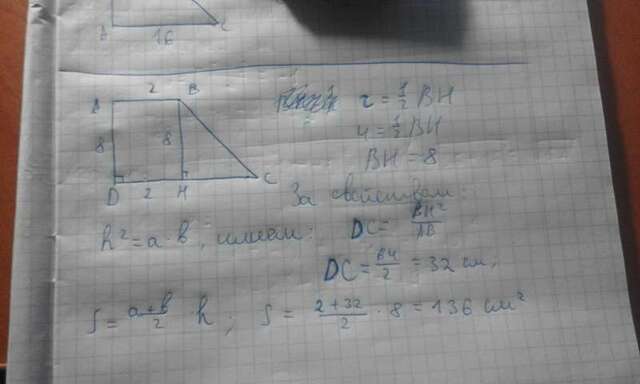 A 16 C
2 B
A
8 8
D 2 H C
r = 1/2 BH
4 = 1/2 BH
BH = 8
За свойством:
h² = a · b, имеем: DC = BH²/AB
DC = 64/2 = 32 см,
S = a+b/2 h; S = 2+32/2 · 8 = 136 см²